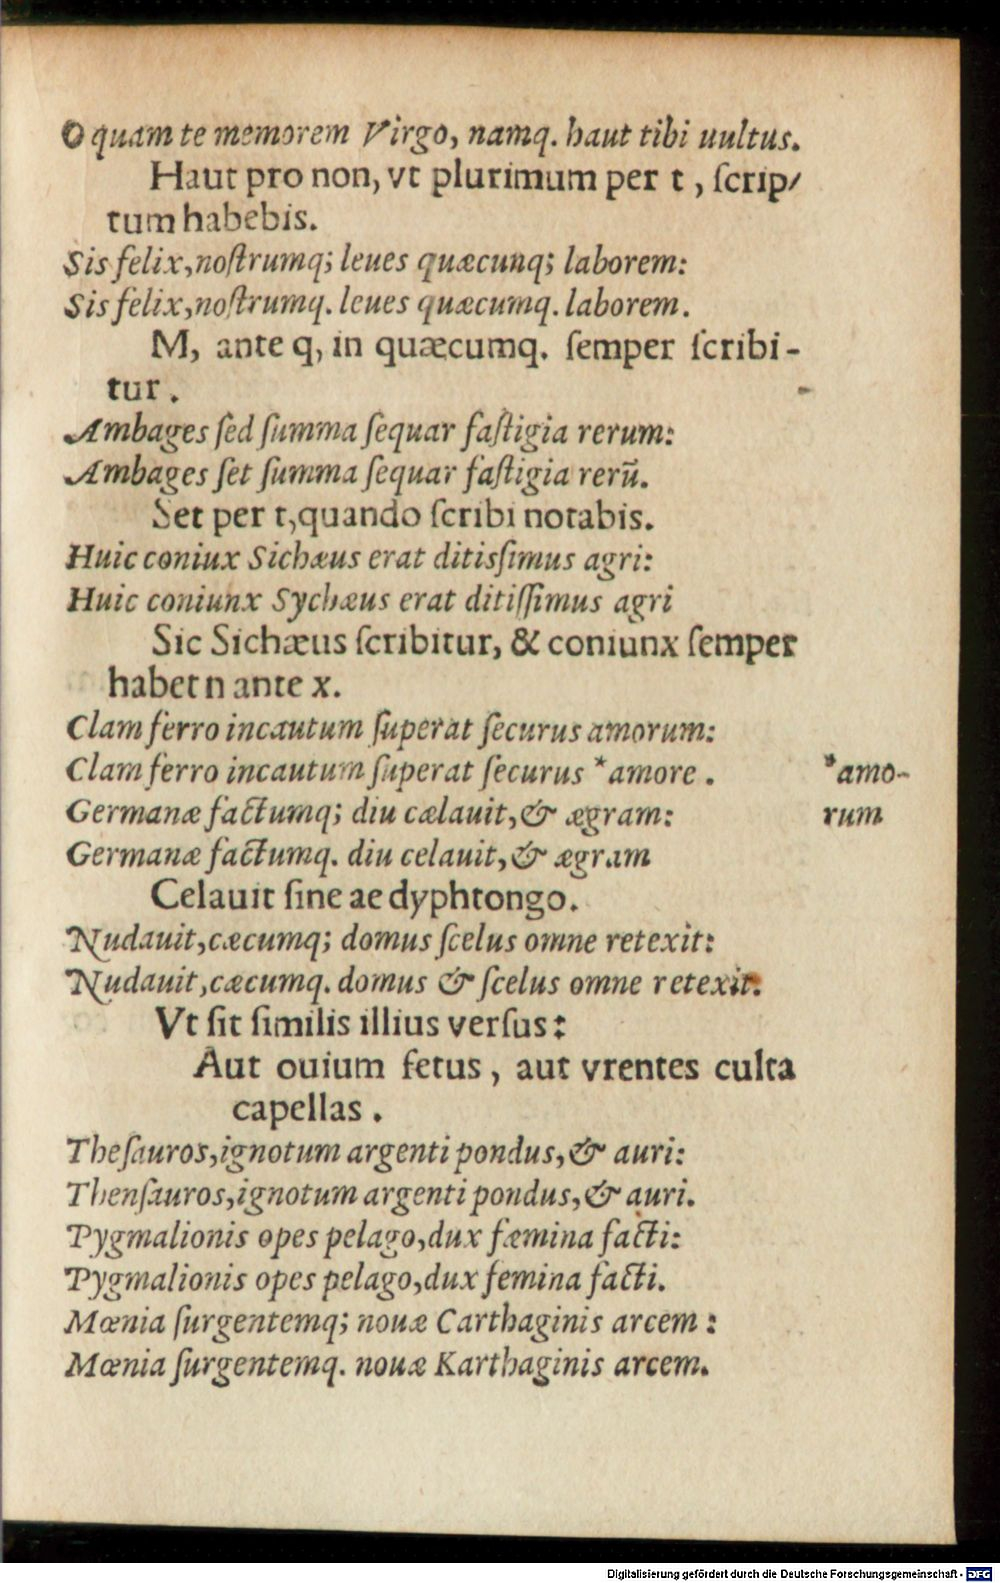 O quam te memorem Virgo, namq. haut tibi uultus.
Haut pro non, vt plurimum per t, ſcrip/
tum habebis.
Sis felix, noſtrumq; leues quæcunq; laborem:
Sis felix, noſtrumq. leues quæcumq. laborem.
M, ante q, in quæcumq. ſemper ſcribi-
tur.
Ambages ſed ſumma ſequar faſtigia rerum:
Ambages ſet ſumma ſequar faſtigia rerū.
Set per t, quando ſcribi notabis.
Huic coniux Sichæus erat ditisſimus agri:
Huic coniunx Sychæus erat ditiſſimus agri
Sic Sichæus ſcribitur, & coniunx ſemper
habet n ante x.
Clam ferro incautum ſuperat ſecurus amorum:
Clam ferro incautum ſuperat ſecurus *amore.
*amo-
rum
Germanæ factumq; diu cælauit, & ægram:
Germanæ factumq. diu celauit, & ægram
Celauit ſine ae dyphtongo.
Nudauit, cæcumq; domus ſcelus omne retexit:
Nudauit, cæcumq. domus & ſcelus omne retexit.
Vt ſit ſimilis illius verſus:
Aut ouium fetus, aut vrentes culta
capellas.
Theſauros, ignotum argenti pondus, & auri:
Thenſauros, ignotum argenti pondus, & auri.
Pygmalionis opes pelago, dux fæmina facti:
Pygmalionis opes pelago, dux femina facti.
Mœnia ſurgentemq; nouæ Carthaginis arcem:
Mœnia ſurgentemq. nouæ Karthaginis arcem.
Digitalisierung gefördert durch die Deutsche Forschungsgemeinschaft - DFG